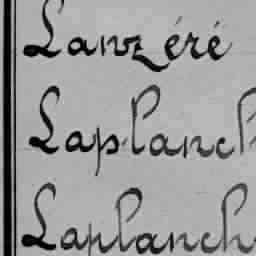 Lanzéré
Laplanch
Laplanch